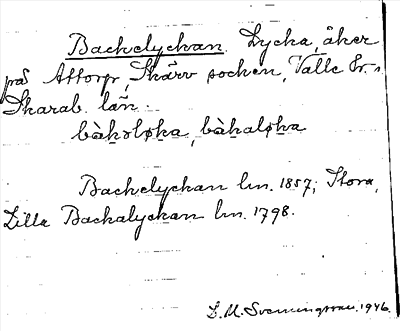 Backelyckan. Lycka, åker
på Attorp, Skärv socken, Valle hd.,
Skarab. län.
bàkəlǿka, bàkalǿka
Backelyckan lm. 1857; Stora,
Lilla Backalyckan lm. 1798.
L. M. Svenningsson. 1946.